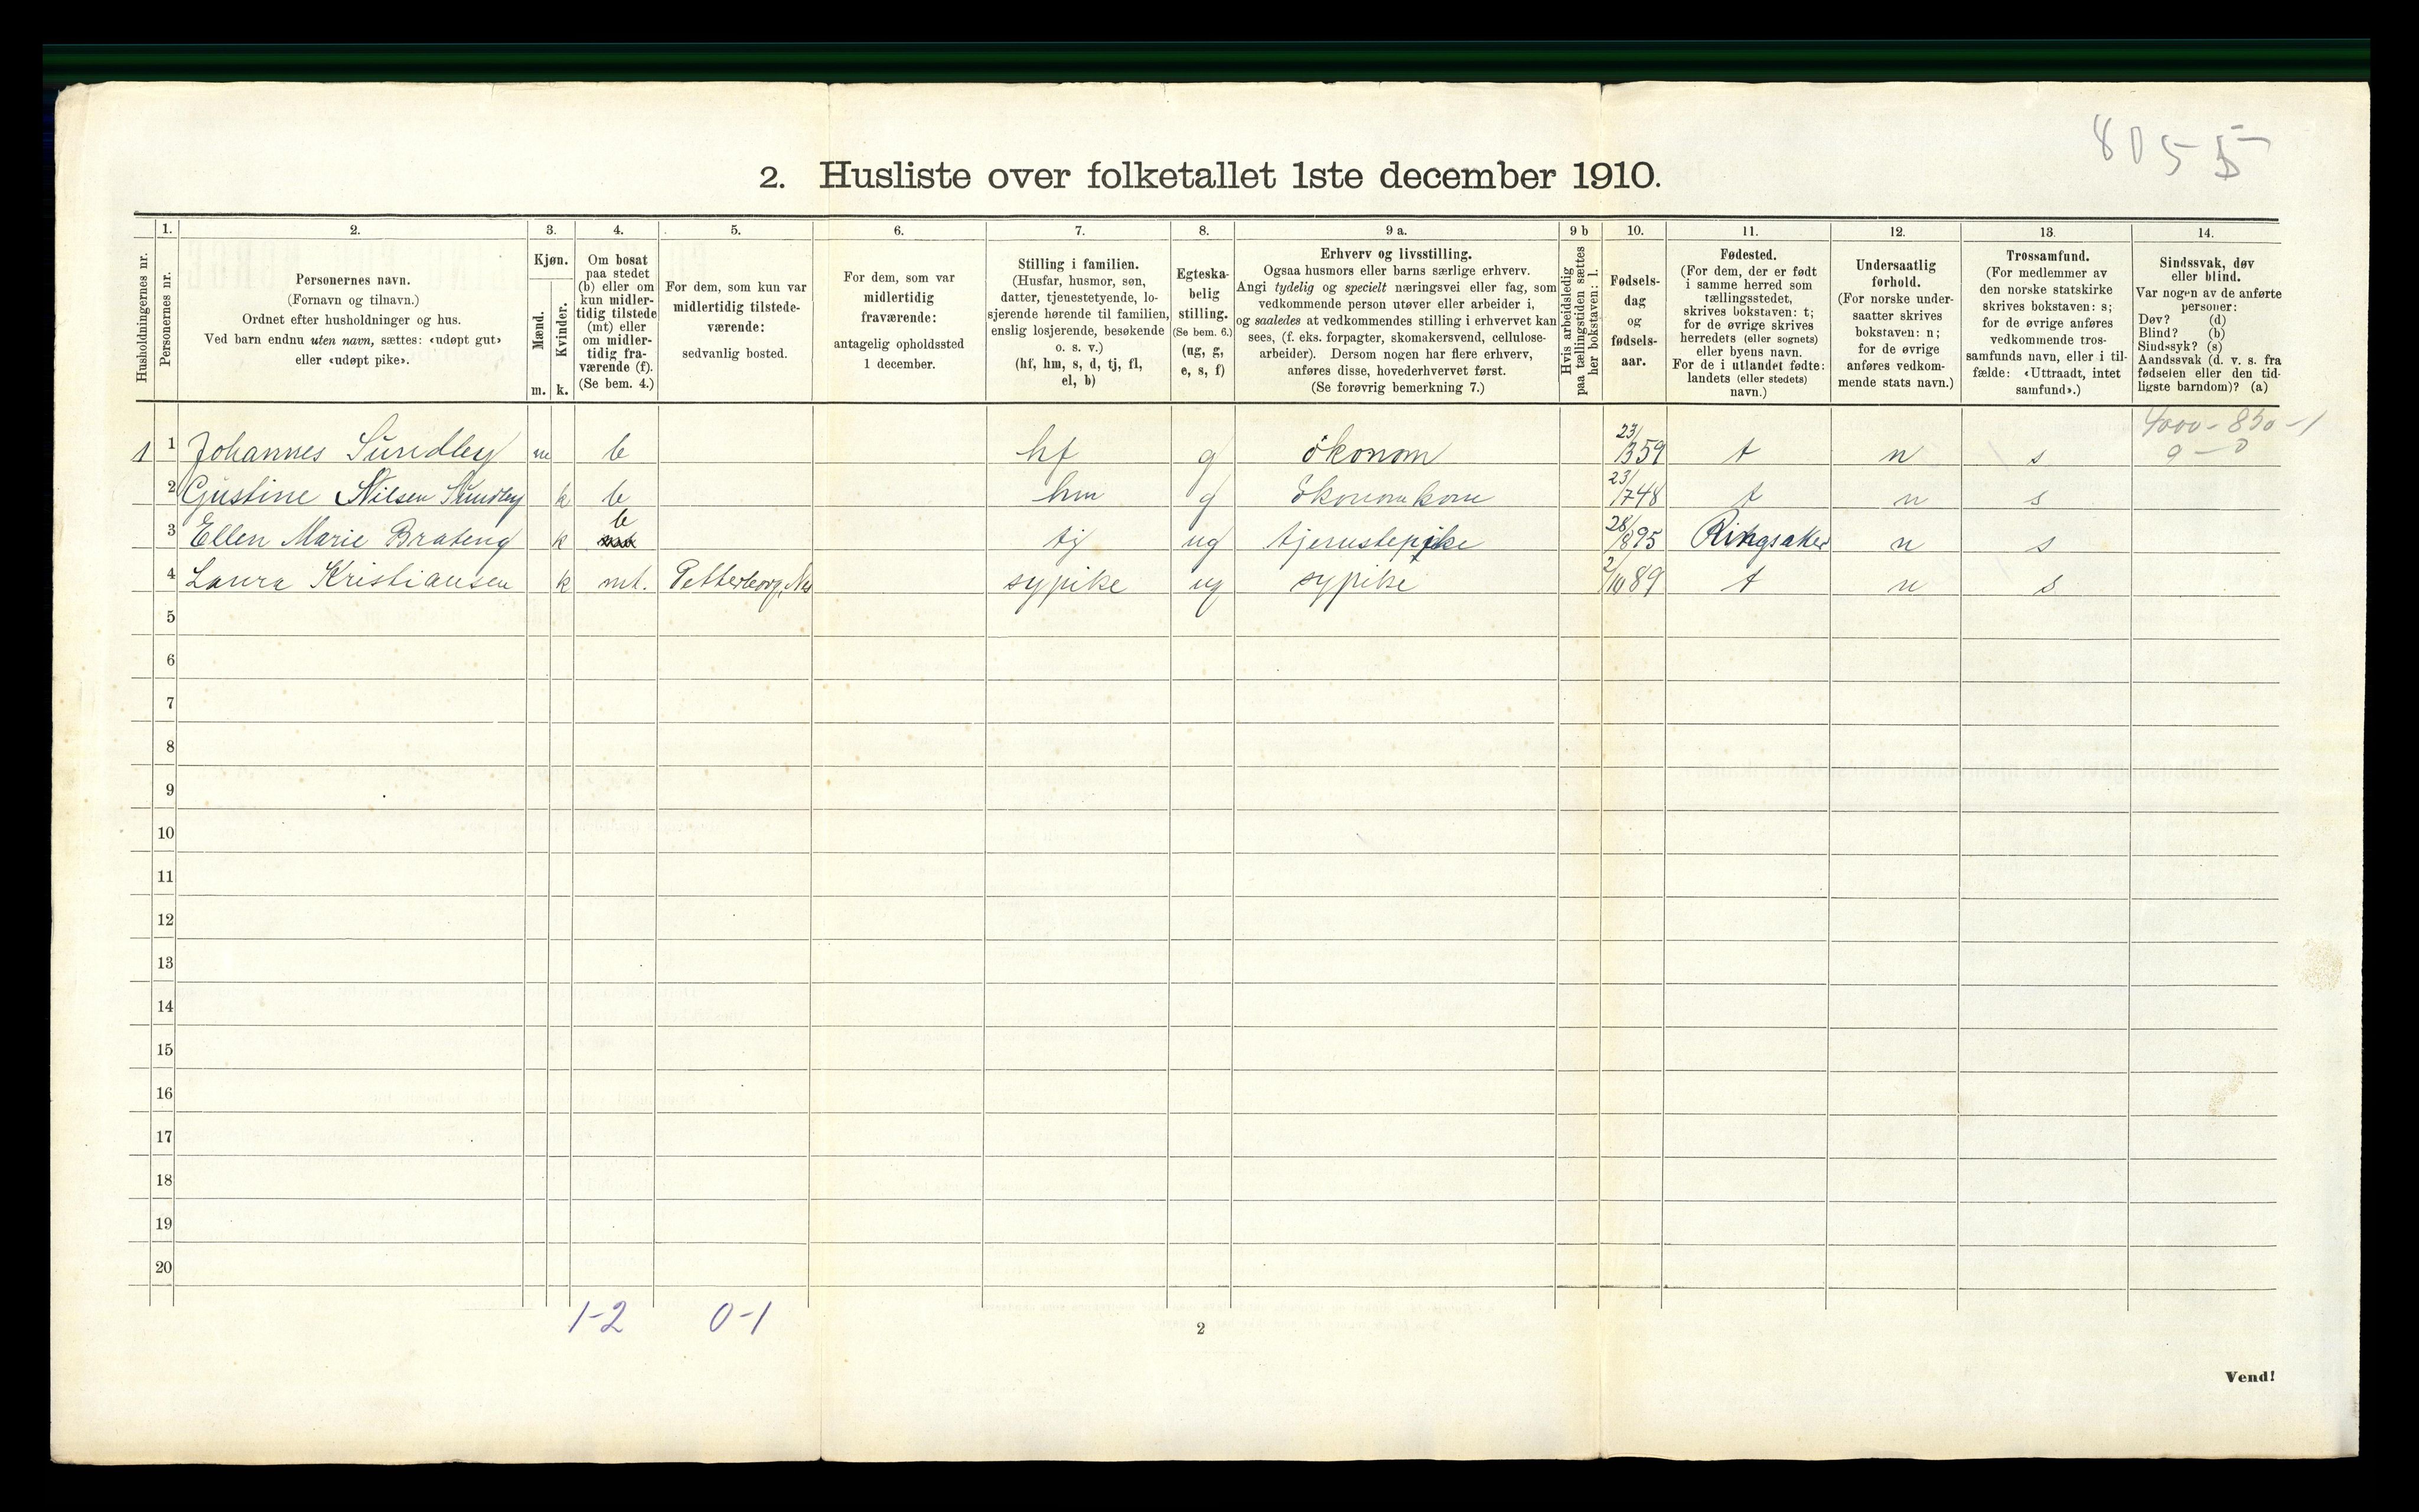 8055
2. Husliste over folketallet 1ste december 1910.
1. 2. 3. 4. 5. 6. 7. 8. 9 a. 9 b 10. 11. 12. 13. 14.
Husholdningernes nr.
Personernes nr.
Personernes navn.
(Fornavn og tilnavn.)
Ordnet efter husholdninger og hus.
Ved barn endnu uten navn, sættes: «udøpt gut»
eller «udøpt pike».
Kjøn.
Mænd.
Kvinder.
m. k.
Om bosat
paa stedet
(b) eller om
kun midler-
tidig tilstede
(mt) eller
om midler-
tidig fra-
værende (f).
(Se bem. 4.)
For dem, som kun var
midlertidig tilstede-
værende:
sedvanlig bosted.
For dem, som var
midlertidig
fraværende:
antagelig opholdssted
1 december.
Stilling i familien.
(Husfar, husmor, søn,
datter, tjenestetyende, lo-
sjerende hørende til familien,
enslig losjerende, besøkende
o. s. v.)
(hf, hm, s, d, tj, fl,
el, b)
Egteska-
belig
stilling.
(Se bem. 6.)
(ug, g,
e, s, f)
Erhverv og livsstilling.
Ogsaa husmors eller barns særlige erhverv.
Angi tydelig og specielt næringsvei eller fag, som
vedkommende person utøver eller arbeider i,
og saaledes at vedkommendes stilling i erhvervet kan
sees, (f. eks. forpagter, skomakersvend, cellulose-
arbeider). Dersom nogen har flere erhverv,
anføres disse, hovederhvervet først.
(Se forøvrig bemerkning 7.)
Hvis arbeidsledig
paa tællingstiden sættes
her bokstaven: l.
Fødsels-
dag
og
fødsels-
aar.
Fødested.
(For dem, der er født
i samme herred som
tællingsstedet,
skrives bokstaven: t;
for de øvrige skrives
herredets (eller sognets)
eller byens navn.
For de i utlandet fødte:
landets (eller stedets)
navn.)
Undersaatlig
forhold.
(For norske under-
saatter skrives
bokstaven: n;
for de øvrige
anføres vedkom-
mende stats navn.)
Trossamfund.
(For medlemmer av
den norske statskirke
skrives bokstaven: s;
for de øvrige anføres
vedkommende tros-
samfunds navn, eller i til-
fælde: «Uttraadt, intet
samfund».)
Sindssvak, døv
eller blind.
Var nogen av de anførte
personer:
Døv? (d)
Blind? (b)
Sindssyk? (s)
Aandssvak (d. v. s. fra
fødselen eller den tid-
ligste barndom)? (a)
4000-850-1
0-0
1 1 Johannes Sundby m b hf g økonom 23/3 59 t n s
2 Gustine Nilsen Sundby k b hm g økonomkone 23/7 48 t n s
3 Ellen Marie Brateng k b tj ug tjenestepike 28/8 95 Ringsaker n s
4 Laura Kristiansen k mt. Petterborg, Nes sypike ug sypike 2/10 89 t n s
5
6
7
8
9
10
11
12
13
14
15
16
17
18
19
20
1-2 0-1
2
Vend!